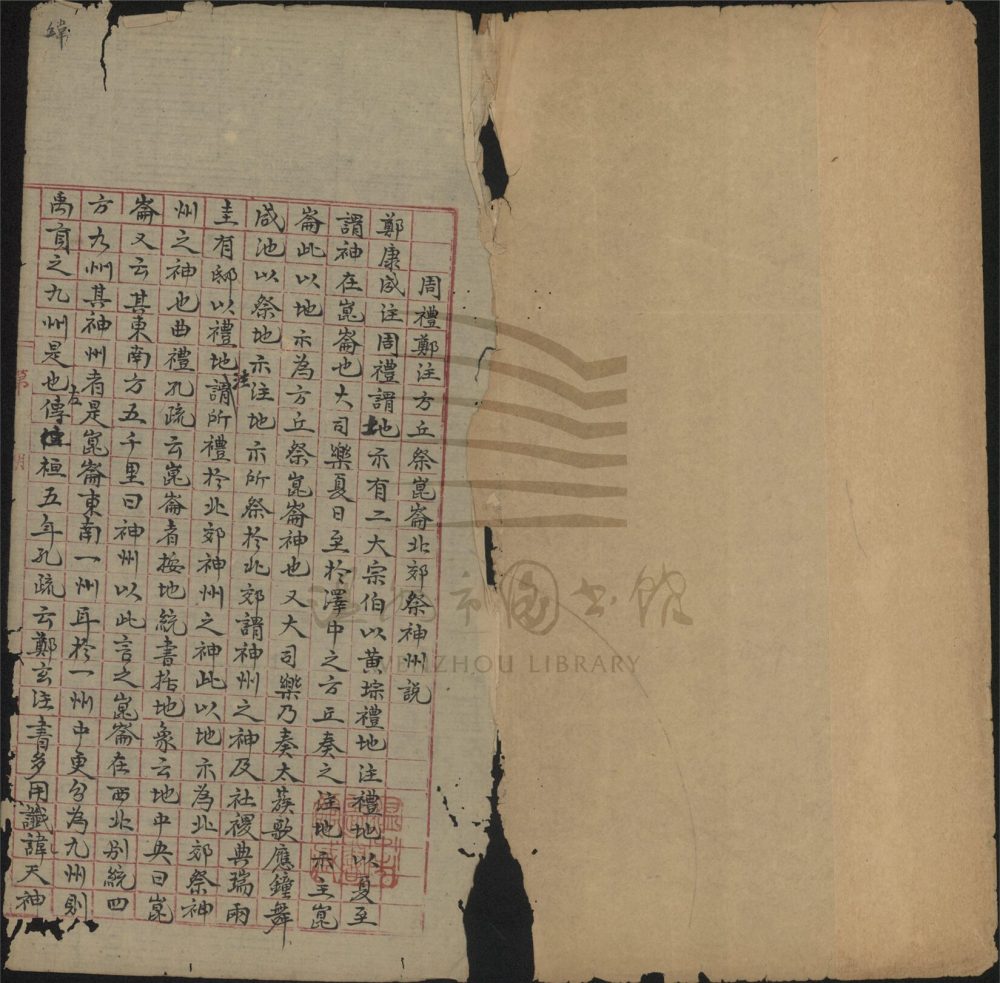 周禮鄭注方丘祭崑崙北郊祭神州説
鄭康成注周禮謂地示有二大宗伯以黄琮禮地注禮地以夏至
謂神在崑崙也大司樂夏日至於澤中之方丘奏之注地示主崑
崙此以地示為方丘祭崑崙神也又大司樂乃奏太蔟歌應鐘舞
咸池以祭地示注地示所祭於北郊謂神州之神及社稷典瑞兩
圭有邸以禮地注謂所禮於北郊神州之神此以地示為北郊祭神
州之神也曲禮孔疏云崑崙者按地統書括地象云地中央曰崑
崙又云其東南方五千里曰神州以此言之崑崙在西北别統四
方九州其神州者是崑崙東南一州耳於一州中更分為九州則
禹貢之九州是也左傳桓五年孔疏云鄭玄注書多用讖諱天神
緯
温州市图书馆
WENZHOU LIBRARY